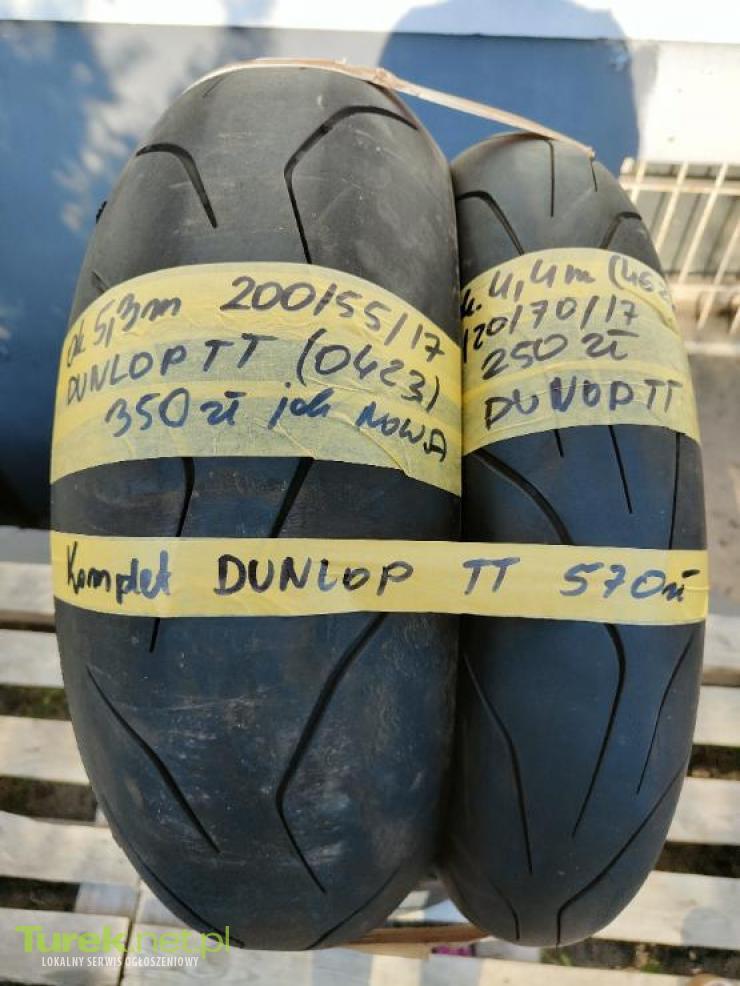 ok 5,3m 200/55/17
DUNLOP TT (0423)
350 zł jak NOWA
4,4m
120/70/17
250 zł
DUNLOP TT
Komplet DUNLOP TT 570zł
Turek.net.pl
LOKALNY SERWIS OGŁOSZENIOWY